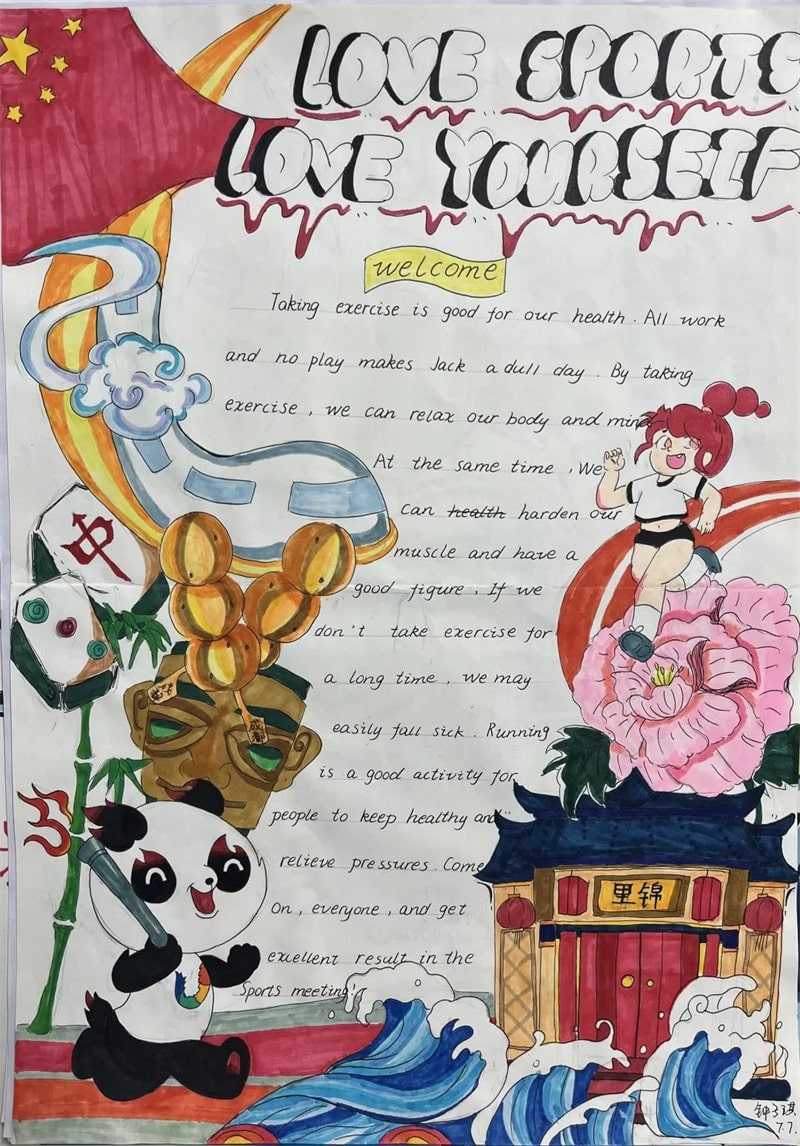 LOVE SPORTS
LOVE YOURSELF
welcome
Taking exercise is good for our health. All work
and no play makes Jack a dull day. By taking
exercise, we can relax our body and mind
At the same time, We
Can health harden our
muscle and have a
good figure, If we
don't take exercise for
a long time, we may
easily fall sick. Running
is a good activity for
people to keep healthy and
relieve pressures. Come
On, everyone, and get
excellent result in the
Sports meeting!
中
成都
锦里
钟子琪
7.7.